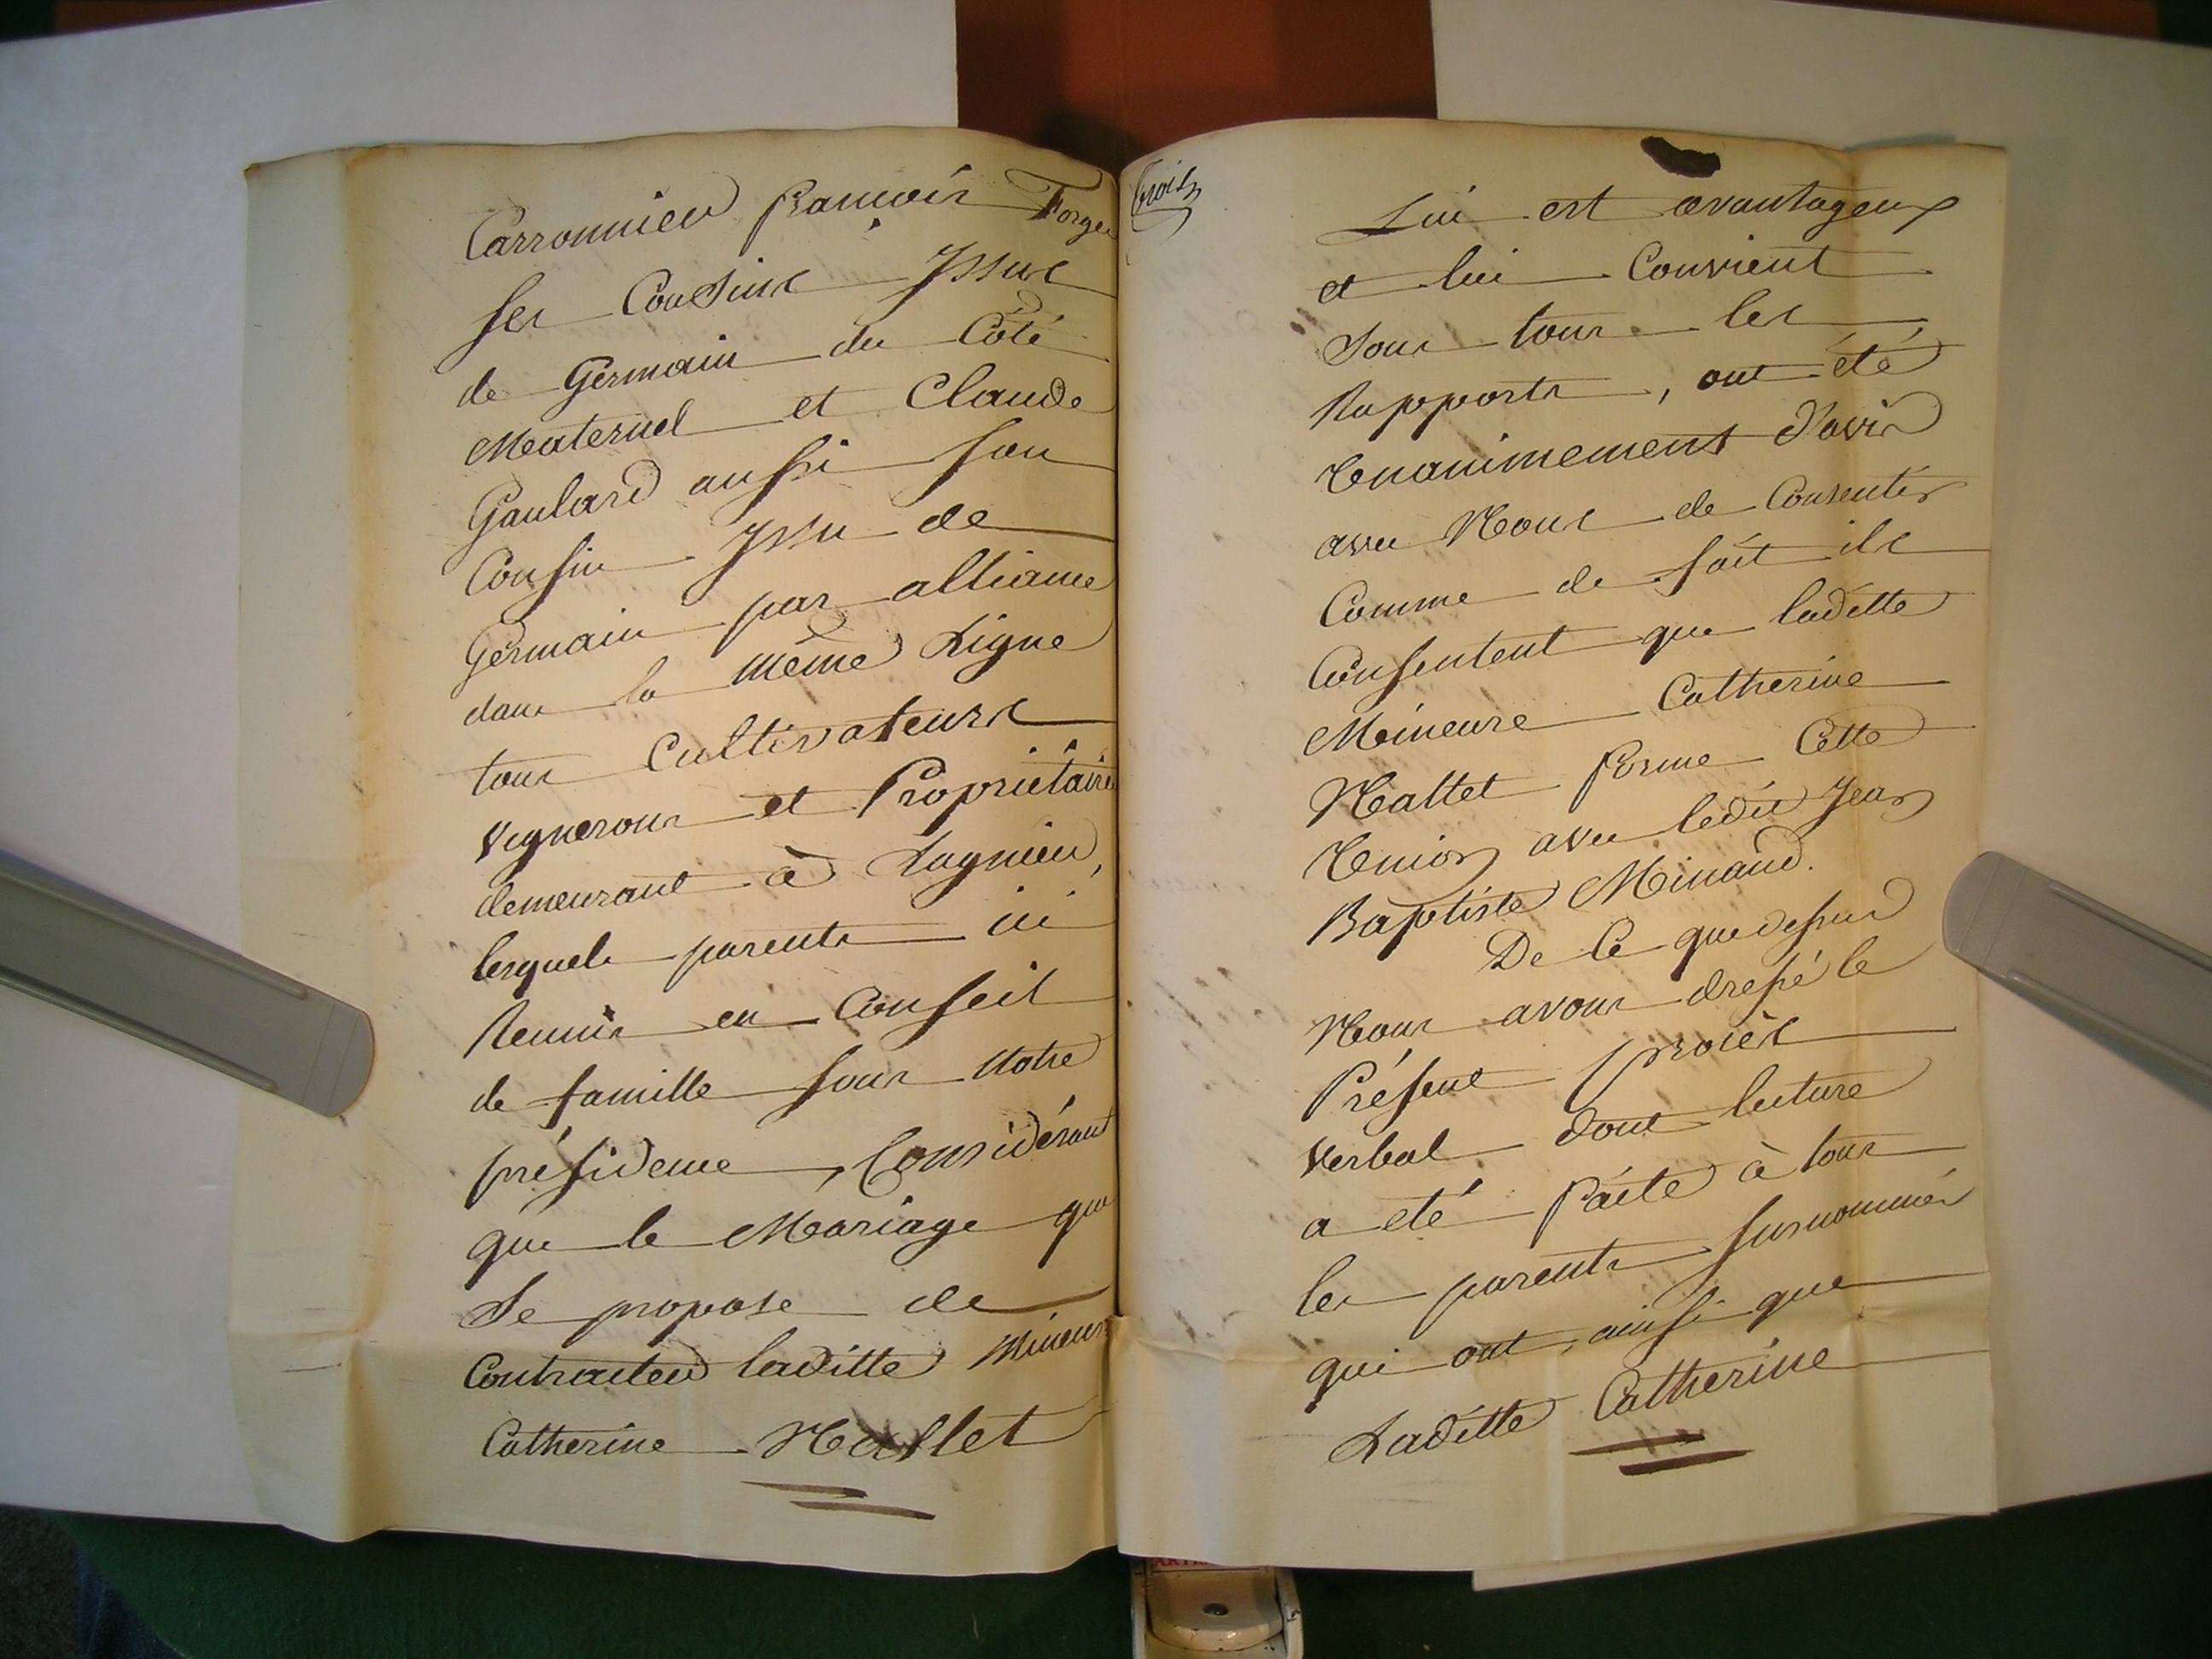 Carronnier françois Forge
ses Cousins Issus
de Germain du Côté
Maternel et Claude
Gaulard aussi son
Cousin Issu de
Germain par alliance
dans la même Ligne
tous Cultivateurs
Vignerons et Propriétaires
demeurant à Lagnieu,
lesquels parents ici
Reunis en Conseil
de famille sous Notre
présidence, Considérant
que le Mariage que
Se propose de
Contracter laditte Mineure
Catherine Nallet
trois
Lui est avantageux
et lui Convient
Sous tous les
Rapports, ont été
Unanimement d'avis
avec Nous de Consentir
Comme de fait ils
Consentent que laditte
Mineure Catherine
Nallet forme Cette
Union avec ledit Jean
Baptiste Minand.
De Ce que dessus
Nous avons dressé le
Présent procès
Verbal dont lecture
a été faite à tous
les parents susnommés
qui ont, ainsi que
Laditte Catherine